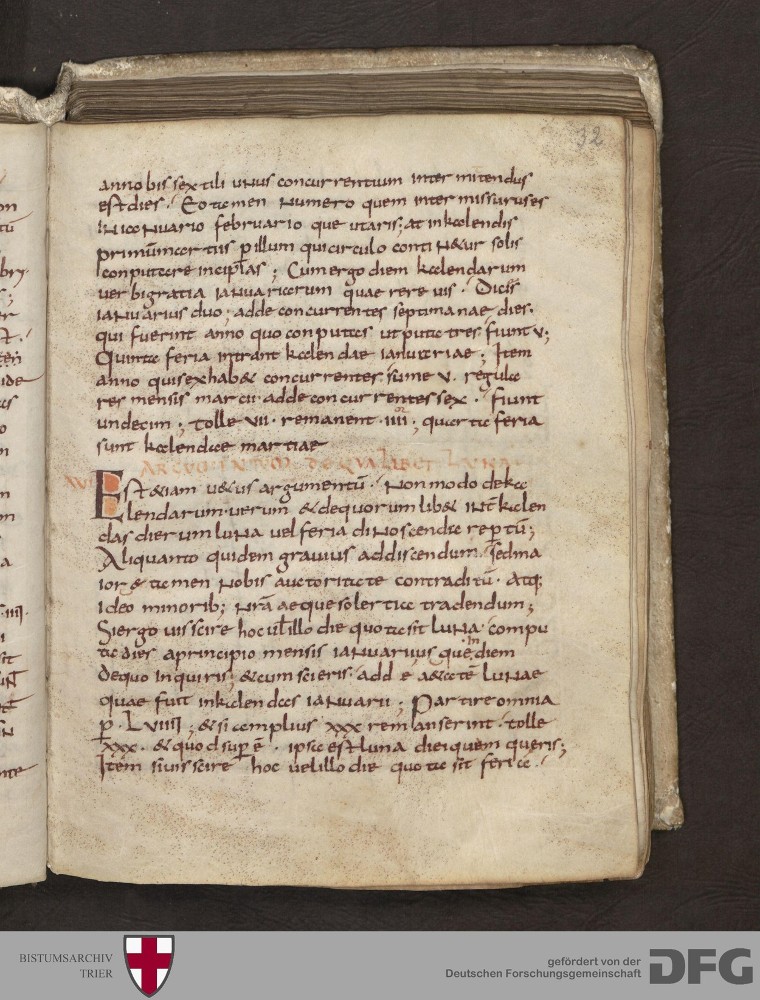 32
anno bissextili unus concurrentium intermittendus
est dies. Eo tamen numero quem intermissurus es
in ianuario februario que utaris; at in kalendis
primum certus ꝑ illum qui circulo continetur solis
computare incipias; Cum ergo diem kalendarum
verbi gratia ianuariarum quaerere vis. Dicis
ianuarius duo; adde concurrentes septimanae dies.
qui fuerint anno quo conputas ut puta tres fiunt v;
Quinta feria intrant kalendae ianuariae; Item
anno qui sex hab& concurrentes sume v. regula
res mensis marcii adde concurrentes sex. Fiunt
undecim; tolle VII. remanent .IIII; quarta feria
sunt kalendae martiae
ARGVMENTVM DE QVALIBET LVNA
Est &iam u&us argumentū. Non modo de ka
lendarum. verum & de quorum lib& inť kalen
das dierum luna vel feria dinoscenda rep̄tū;
Aliquanto quidem gravius ad discendum. sed ma
iore tamen nobis auctoritate contraditū. Atq;
ideo minorib; nr̄a aeque solertia tradendum;
Si ergo vis scire hoc uł illo die quota sit luna. compu
ta dies a principio mensis ianuarius que in diem
de quo inquiris; & cum scieris. adde a&atē lunae
quae fuit in kalendas ianuarii; Partire omnia
ꝑ. LVIIII; & si amplius xxx remanserint. tolle
xxx. & quod sup̄ ē. ipsa est luna diei quem queris;
Item si vis scire hoc vel illo die quota sit feria.
BISTUMSARCHIV
TRIER
gefördert von der
Deutschen Forschungsgemeinschaft
DFG